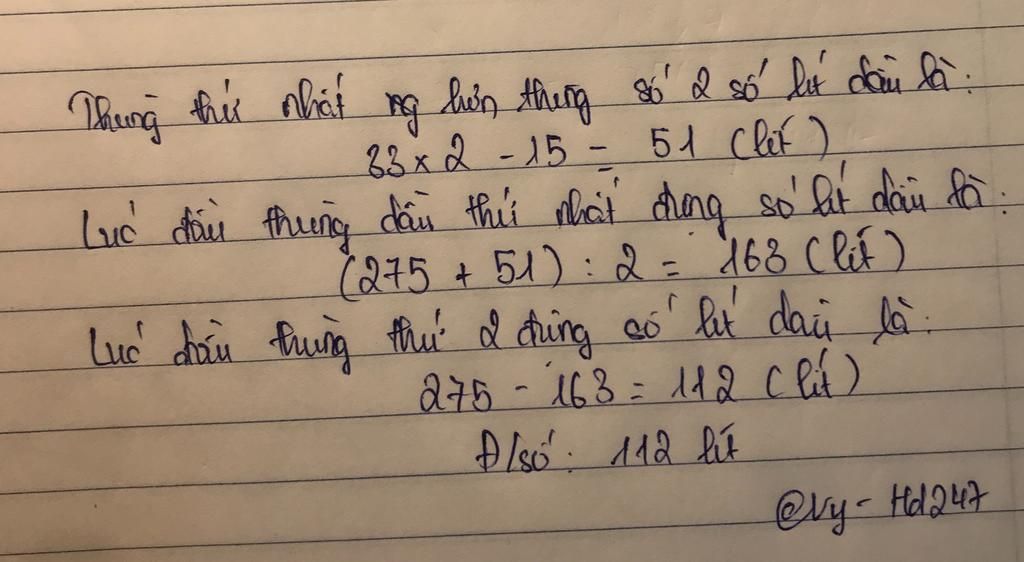 Thùng thứ nhất ng hơn thùng số 2 số lít dầu là:
33 x 2 - 15 = 51 (lít)
Lúc đầu thùng dầu thứ nhất đựng số lít dầu là:
(275 + 51) : 2 = 163 (lít)
Lúc đầu thùng thứ 2 đựng số lít dầu là:
275 - 163 = 112 (lít)
Đ/số: 112 lít
@Vy - Hd247